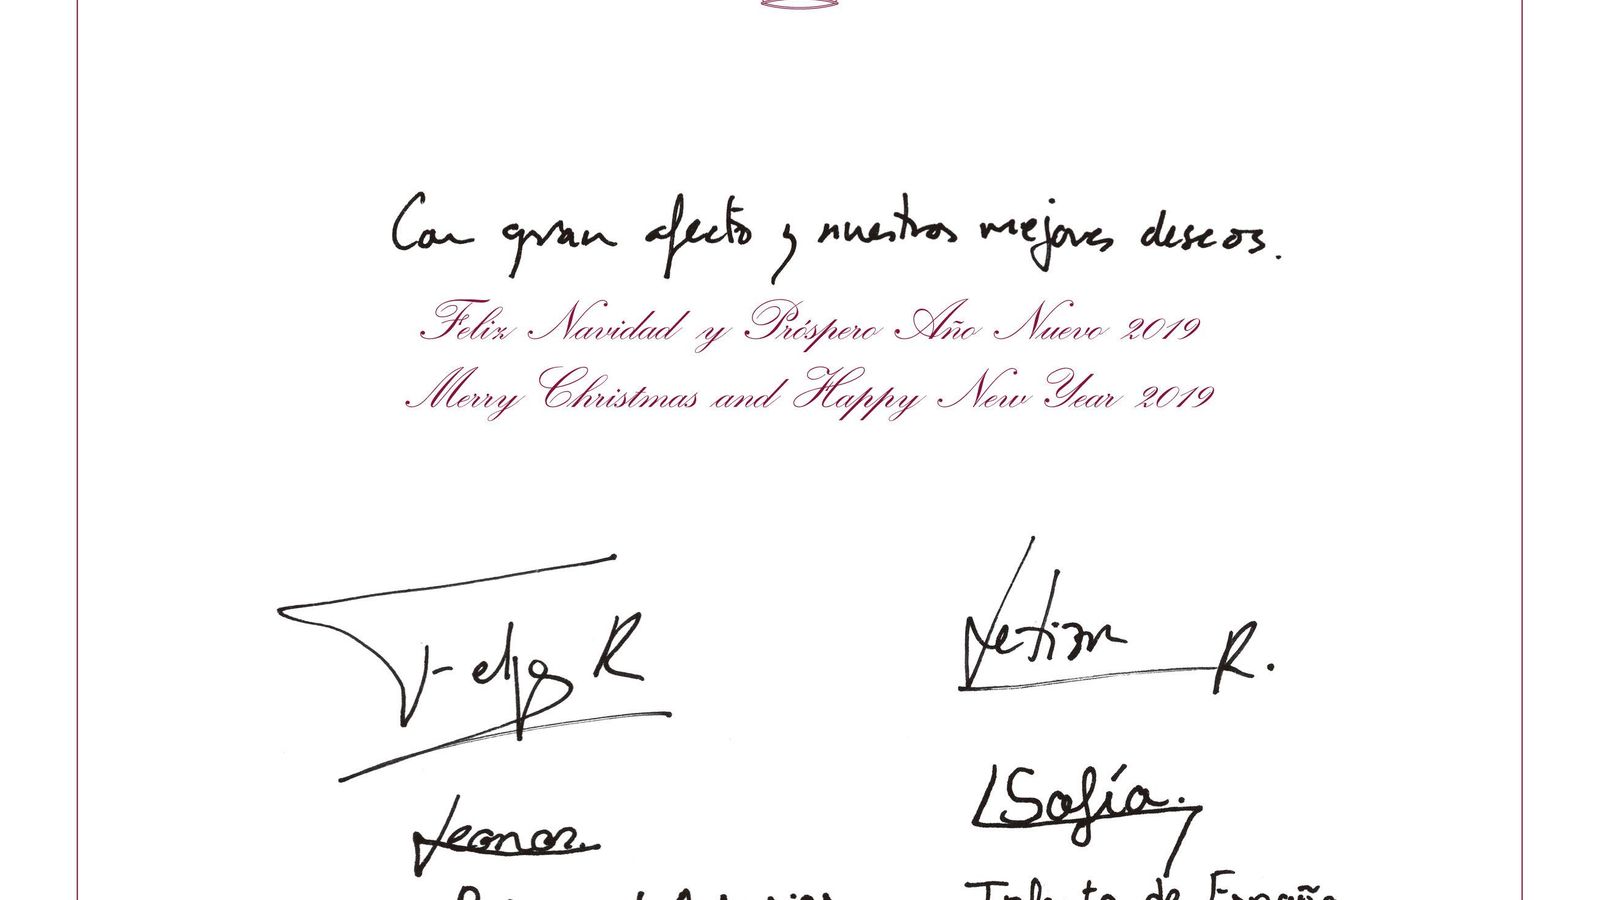 Con gran afecto y nuestros mejores deseos.
Feliz Navidad y Próspero Año Nuevo 2019
Merry Christmas and Happy New Year 2019
Felipe R
Letizia R.
Leonor.
Sofía.
Infanta de España